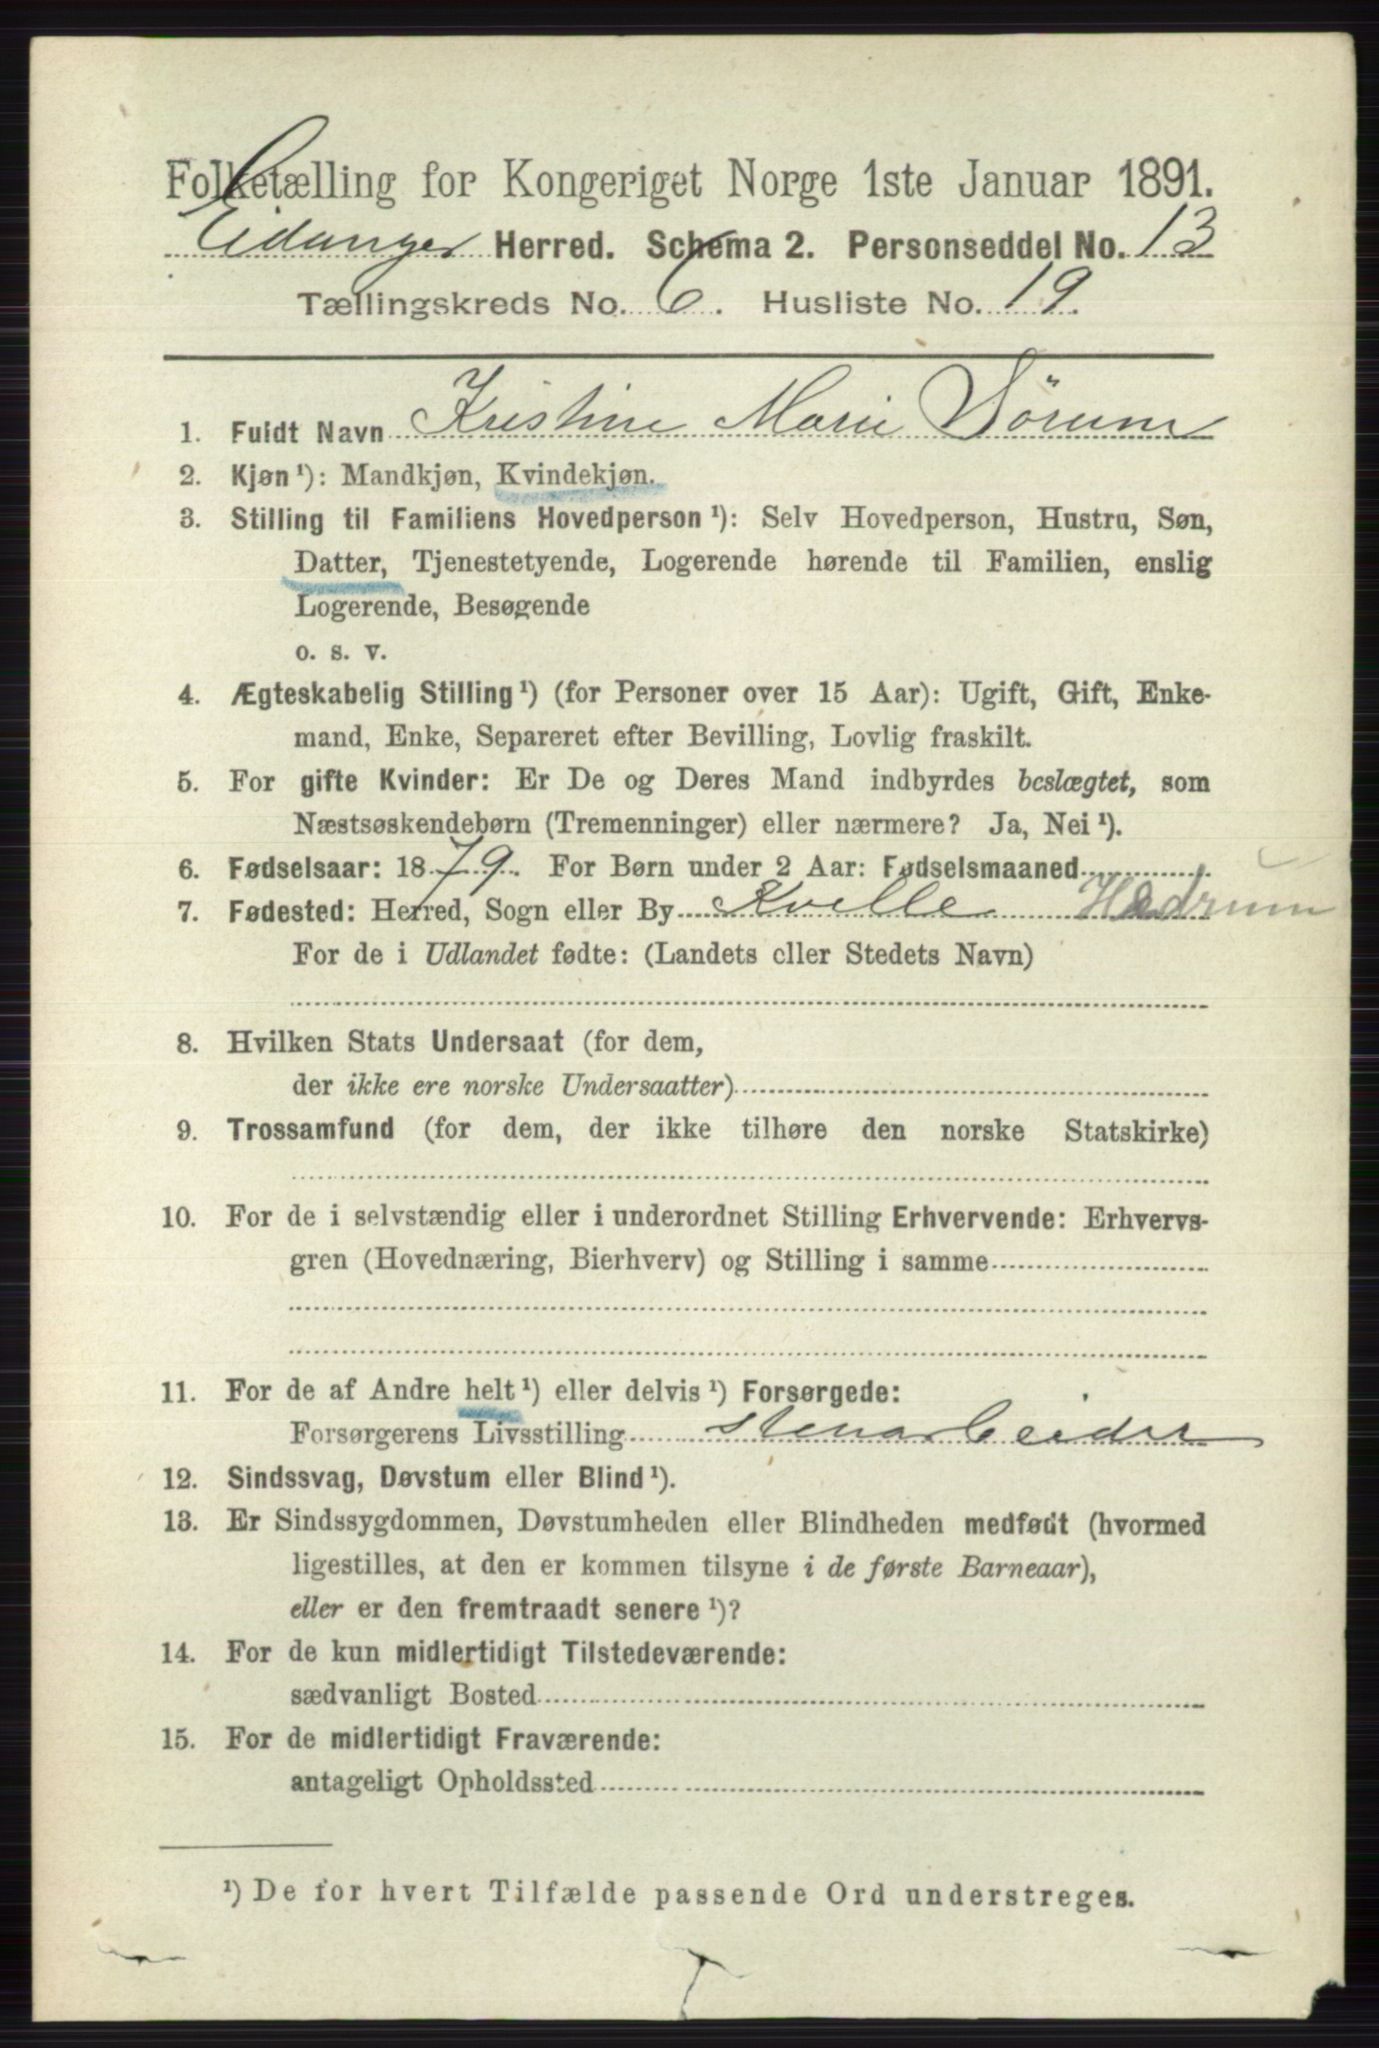 Folketælling for Kongeriget Norge 1ste Januar 1891.
Eidanger Herred. Schema 2. Personseddel No. 13
Tællingskreds No. 6. Husliste No. 19.
1. Fuldt Navn Kristine Marie Sörum
2. Kjøn¹): Mandkjøn, Kvindekjøn.
3. Stilling til Familiens Hovedperson¹): Selv Hovedperson, Hustru, Søn,
Datter, Tjenestetyende, Logerende hørende til Familien, enslig
Logerende, Besøgende
o. s. v.
4. Ægteskabelig Stilling¹) (for Personer over 15 Aar): Ugift, Gift, Enke-
mand, Enke, Separeret efter Bevilling, Lovlig fraskilt.
5. For gifte Kvinder: Er De og Deres Mand indbyrdes beslægtet, som
Næstsøskendebørn (Tremenninger) eller nærmere? Ja, Nei¹).
6. Fødselsaar: 1879. For Børn under 2 Aar: Fødselsmaaned
7. Fødested: Herred, Sogn eller By Kvelle Hedrum
For de i Udlandet fødte: (Landets eller Stedets Navn)
8. Hvilken Stats Undersaat (for dem,
der ikke ere norske Undersaatter)
9. Trossamfund (for dem, der ikke tilhøre den norske Statskirke)
10. For de i selvstændig eller i underordnet Stilling Erhvervende: Erhvervs-
gren (Hovednæring, Bierhverv) og Stilling i samme
11. For de af Andre helt¹) eller delvis¹) Forsørgede:
Forsørgerens Livsstilling stenarbeider
12. Sindssvag, Døvstum eller Blind¹).
13. Er Sindssygdommen, Døvstumheden eller Blindheden medfødt (hvormed
ligestilles, at den er kommen tilsyne i de første Barneaar),
eller er den fremtraadt senere¹)?
14. For de kun midlertidigt Tilstedeværende:
sædvanligt Bosted
15. For de midlertidigt Fraværende:
antageligt Opholdssted
¹) De for hvert Tilfælde passende Ord understreges.